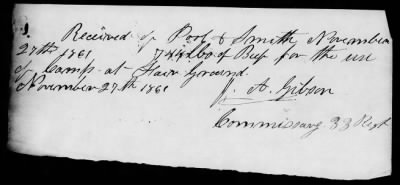 Received of Pool & Smith November
27th 1861 744 lbs of Beef for the use
of Camp at Fair Ground.
November 27th 1861
J. A. Gibson
Commissary 33 Regt